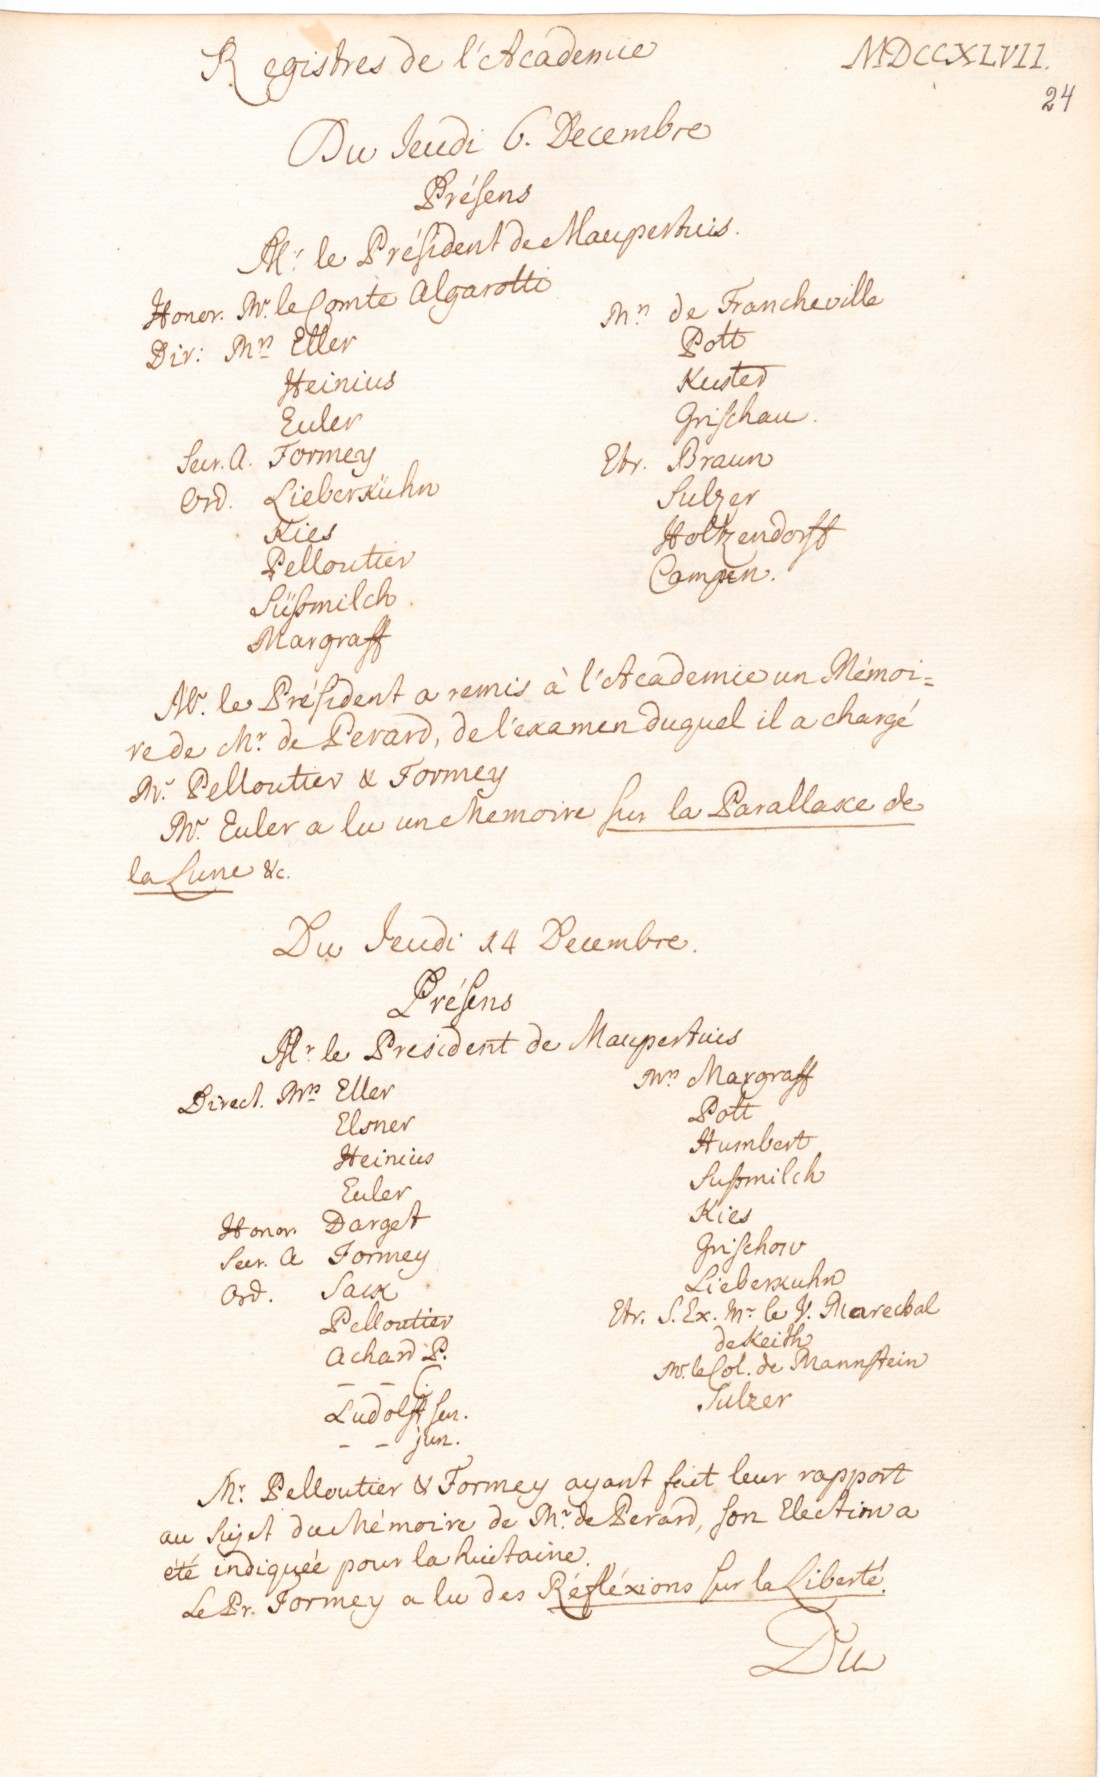 Registres de l'Academie
MDCCXLVII.
24
Du Jeudi 6. Decembre
Présens
Mr. le Président de Maupertuis.
Honor. Mr. le Comte Algarotti
Dir: Mrs Eller
Heinius
Euler
Secr. A. Formey
Ord. Lieberkühn
Kies
Pelloutier
Süßmilch
Margraff
Mrs de Francheville
Pott
Grischau.
Etr. Braun
Sulzer
Holtzendorff
Campen.
Mr. le Président a remis à l'Academie un Mémoi=
re de Mr. de Perard, de l'examen duquel il a chargé
Mr. Pelloutier & Formey
Mr. Euler a lu un Memoire sur la Parallaxe de
la Lune &c.
Du Jeudi 14 Decembre.
Présens
Mr le President de Maupertuis
Direct. Mrs Eller
Elsner
Heinius
Euler
Honor. Darget
Secr. A Formey
Ord. Sack
Pelloutier
Achard P.
_ _ C.
Ludolff sen.
_ _ jun.
Mrs Margraff
Pott
Humbert
Sußmilch
Kies
Grischow
Lieberkuhn
Etr. S. Ex. Mr. le Marechal
de Keith
Mr. le Col. de Mannstein
Sulzer
Mr. Pelloutier & Formey ayant fait leur rapport
au Sujet du Mémoire de Mr. de Perard, son Election a
été indiquée pour la huitaine.
Le Pr. Formey a lu des Réfléxions sur la Liberté.
Du